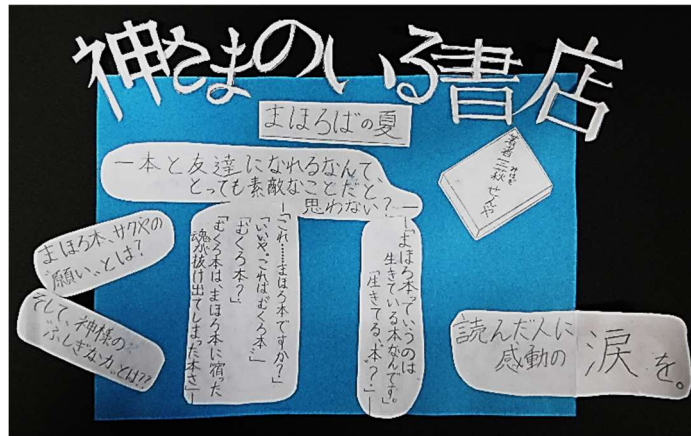 神さまのいる書店
まほろばの夏
著者 三秋 せんや
みあき
―本と友達になれるなんて、
とっても素敵なことだと、
思わない？―
―「まほろ本っていうのは
生きている本なんです。」
「生きてる、本？」―
―「これ……まほろ本ですか？」
「いいや。これはむくろ本」
「むくろ本？」
「むくろ本は、まほろ本に宿った
魂が抜け出てしまった本さ」―
まほろ本、サクヤの
“願い”とは？
そして、神様の
“ふしぎな力”とは??
読んだ人に
感動の
涙を。